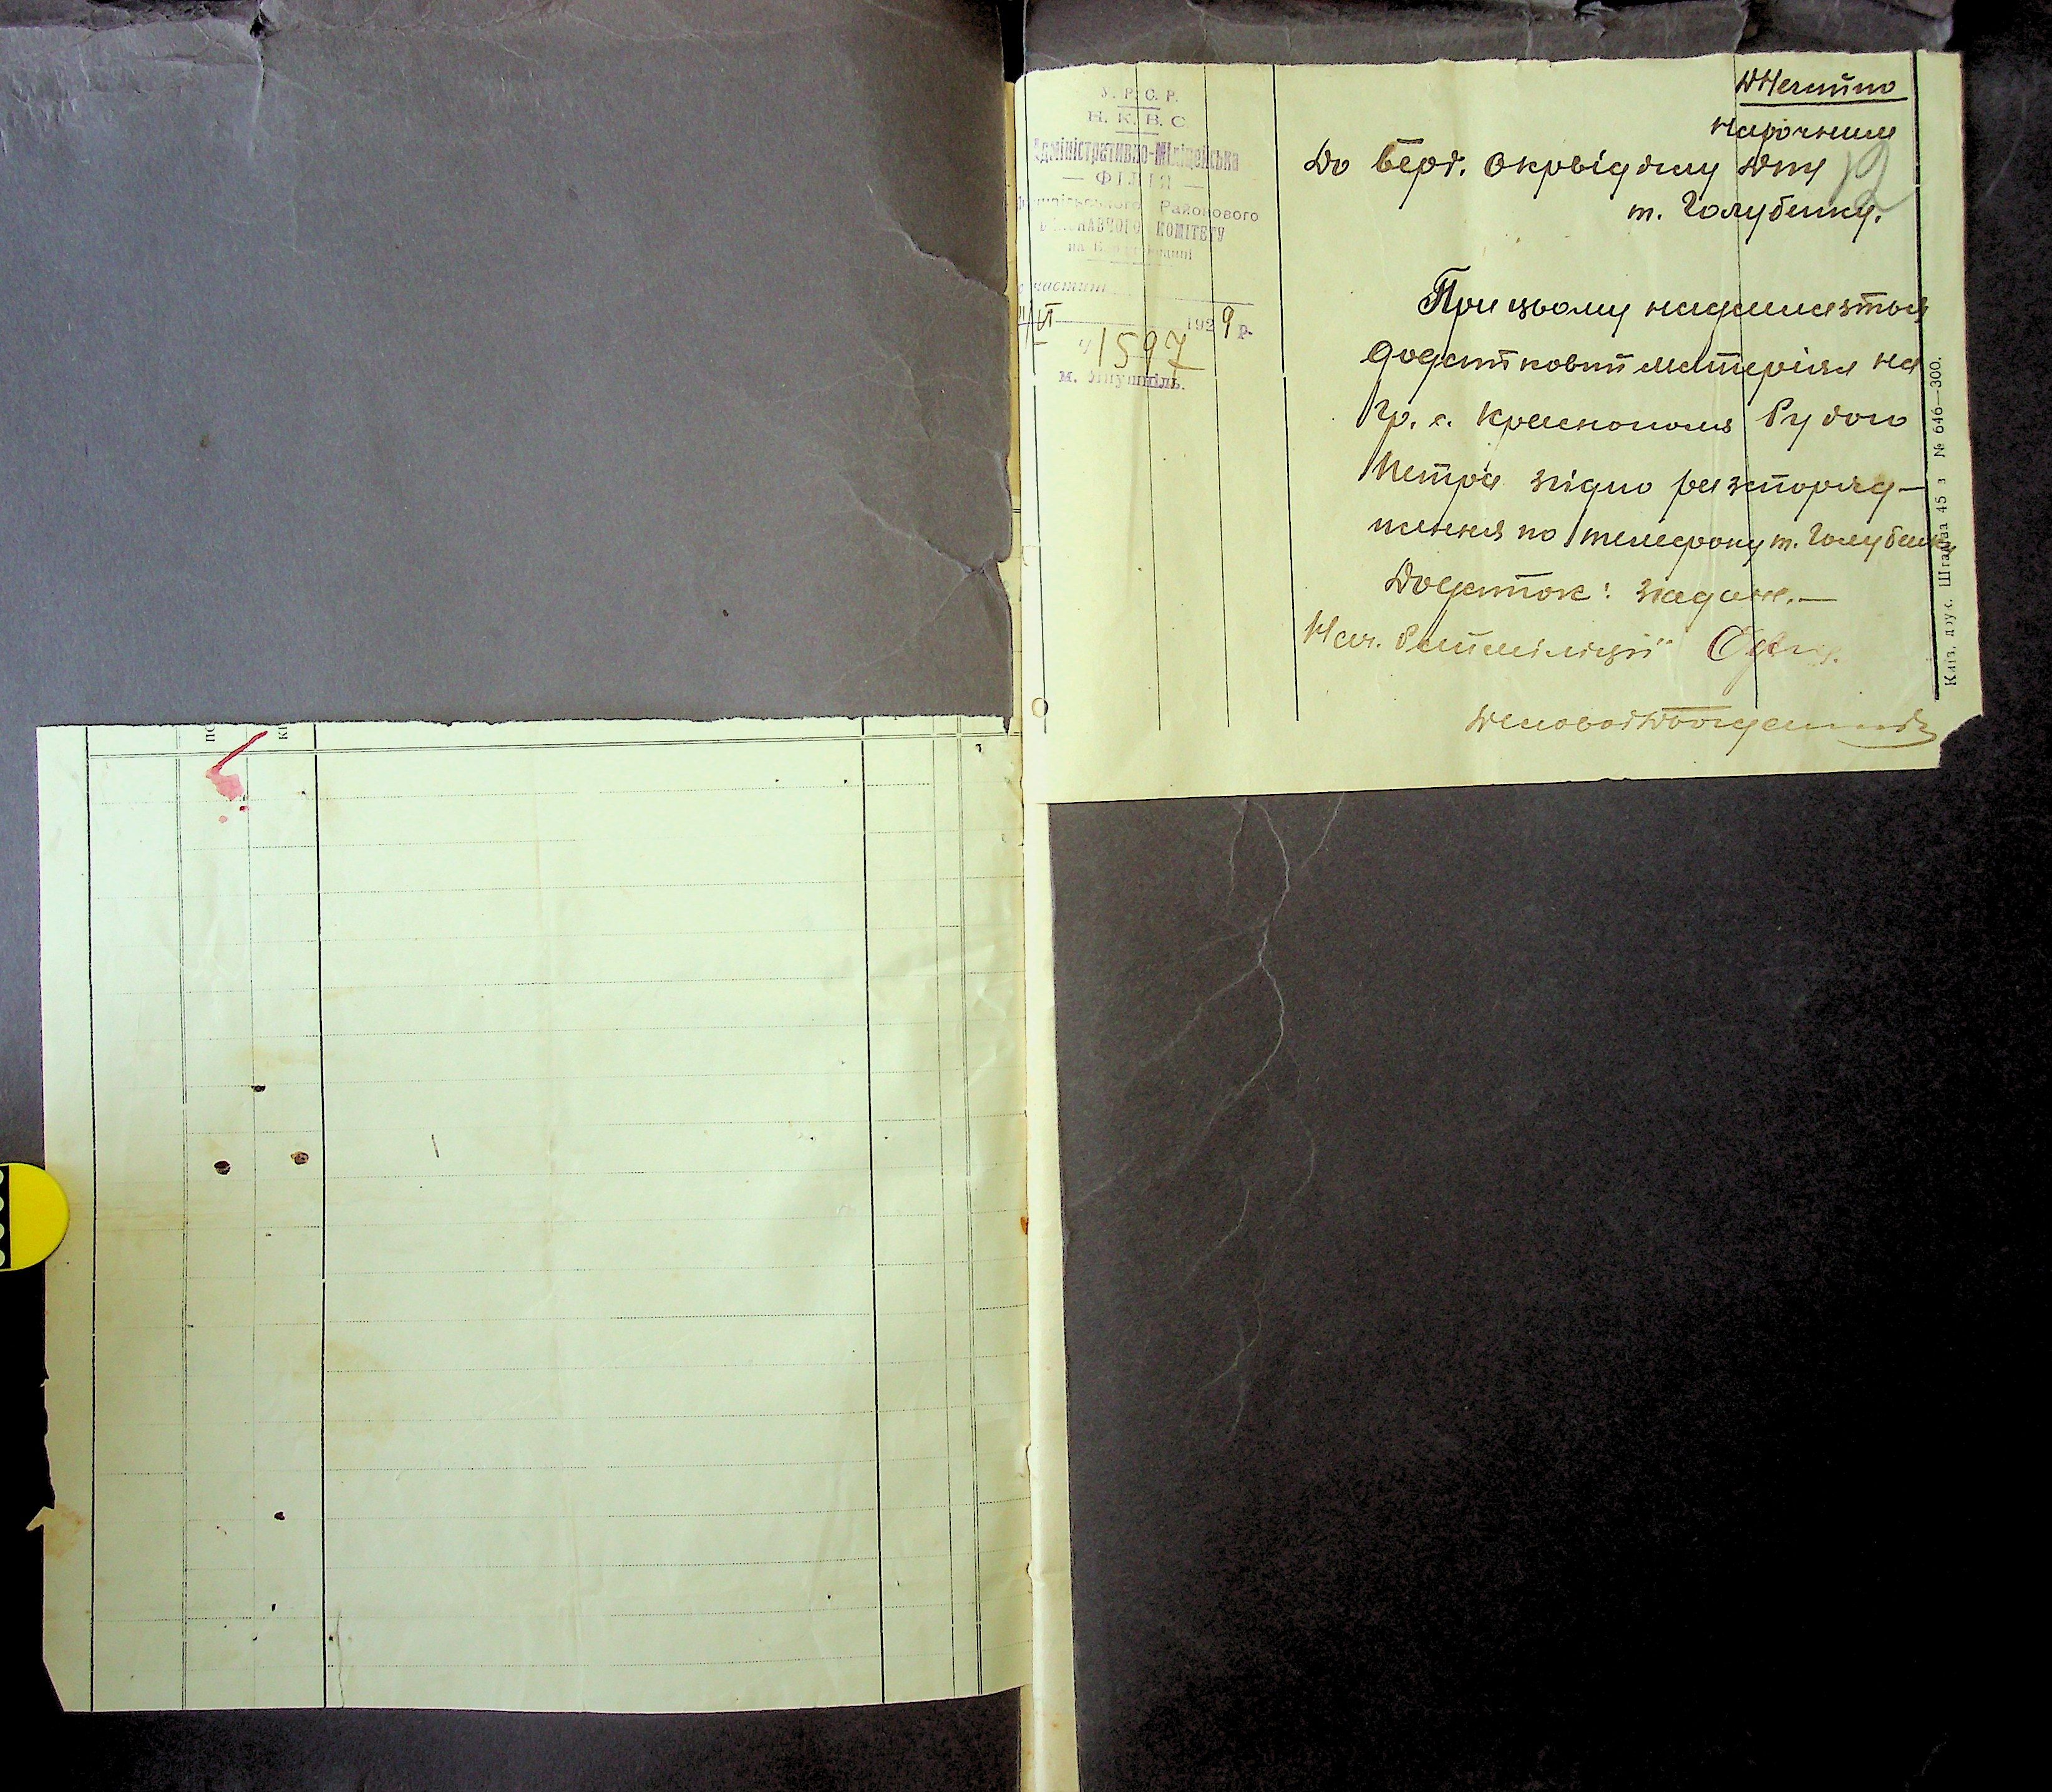 У. Р. С. Р.
Н. К. В. С.
Адміністративно-Міліцейська
— ФІЛІЯ —
Районового
КОМІТЕТУ
на
частина
11/VI 1929 р.
Ч 1597
м. Янушпіль.
Нарочним
До Берд. Окрвідділу ДПУ
т. Голубенку.
12
При цьому надсилається
додатковий матеріял на
гр. с. Краснополя Рудого
Петра згідно разпоряд-
ження по телефону т. Голубенка
Додаток: згадане.—
Нач. Райміліції
Київ. друк. Штадва 45 з № 646—300.
по
кі